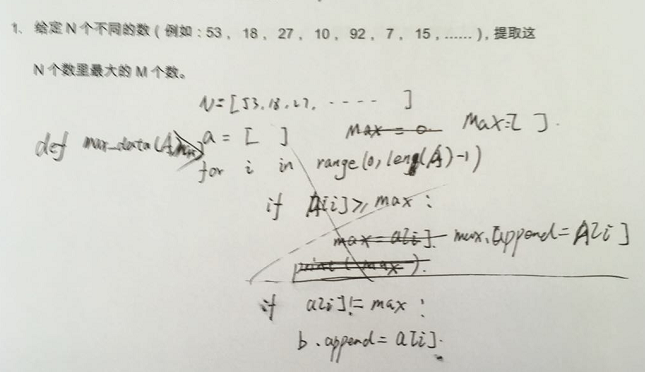 1、给定N个不同的数（例如：53，18，27，10，92，7，15，……），提取这
N个数里最大的M个数。
N=[53,18,27, ---- ]
def max_data(
a = [ ] max = 0 Max=[ ].
for i in range(0, leng(A)-1)
if A[i]>, max :
max = a[i]. max.append=A[i]
print(max).
if a[i]!= max :
b.append= a[i].